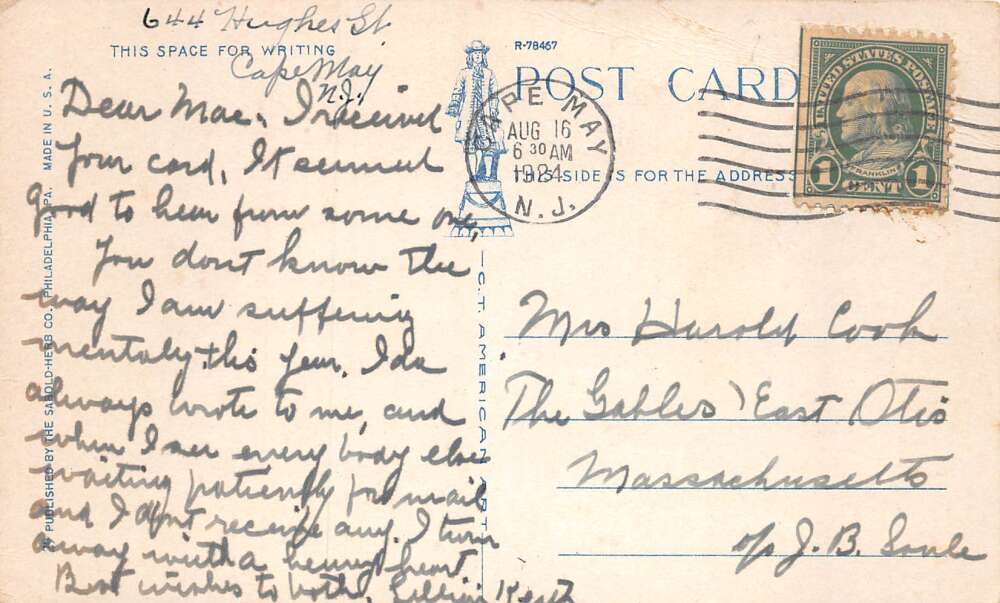 644 Hughes St.
THIS SPACE FOR WRITING
Cape May
N.J.
Dear Mae, I received
your card, It seemed
good to hear from some one,
You dont know the
way I am suffering
mentaly this year. Ida
always wrote to me, and
when I see every body else
waiting patiently for mail
and I dont receive any. I turn
away with a heavy heart
Best wishes to both. Lillian
29 PUBLISHED BY THE SABOLD-HERB CO., PHILADELPHIA, PA. MADE IN U. S. A.
C. T. AMERICAN ART
R-78467
POST CARD
THIS SIDE IS FOR THE ADDRESS
CAPE MAY
AUG 16
6 30 AM
1924
N. J.
UNITED STATES POSTAGE
FRANKLIN
1 CENT 1
Mrs Harold Cook
The Gables, East Otis
Massachusetts
J. B. Soule